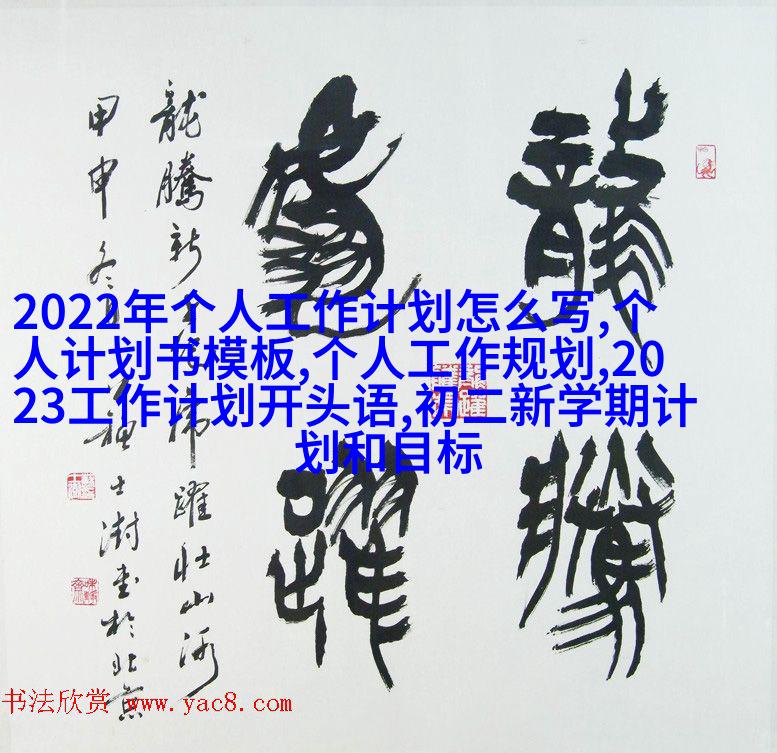 龍騰
虎躍
龍騰新
躍壮山河
甲申冬
士澍書於北京
2022年个人工作计划怎么写,个
人计划书模板,个人工作规划,20
23工作计划开头语,初二新学期计
划和目标
书法欣赏 www.yac8.com